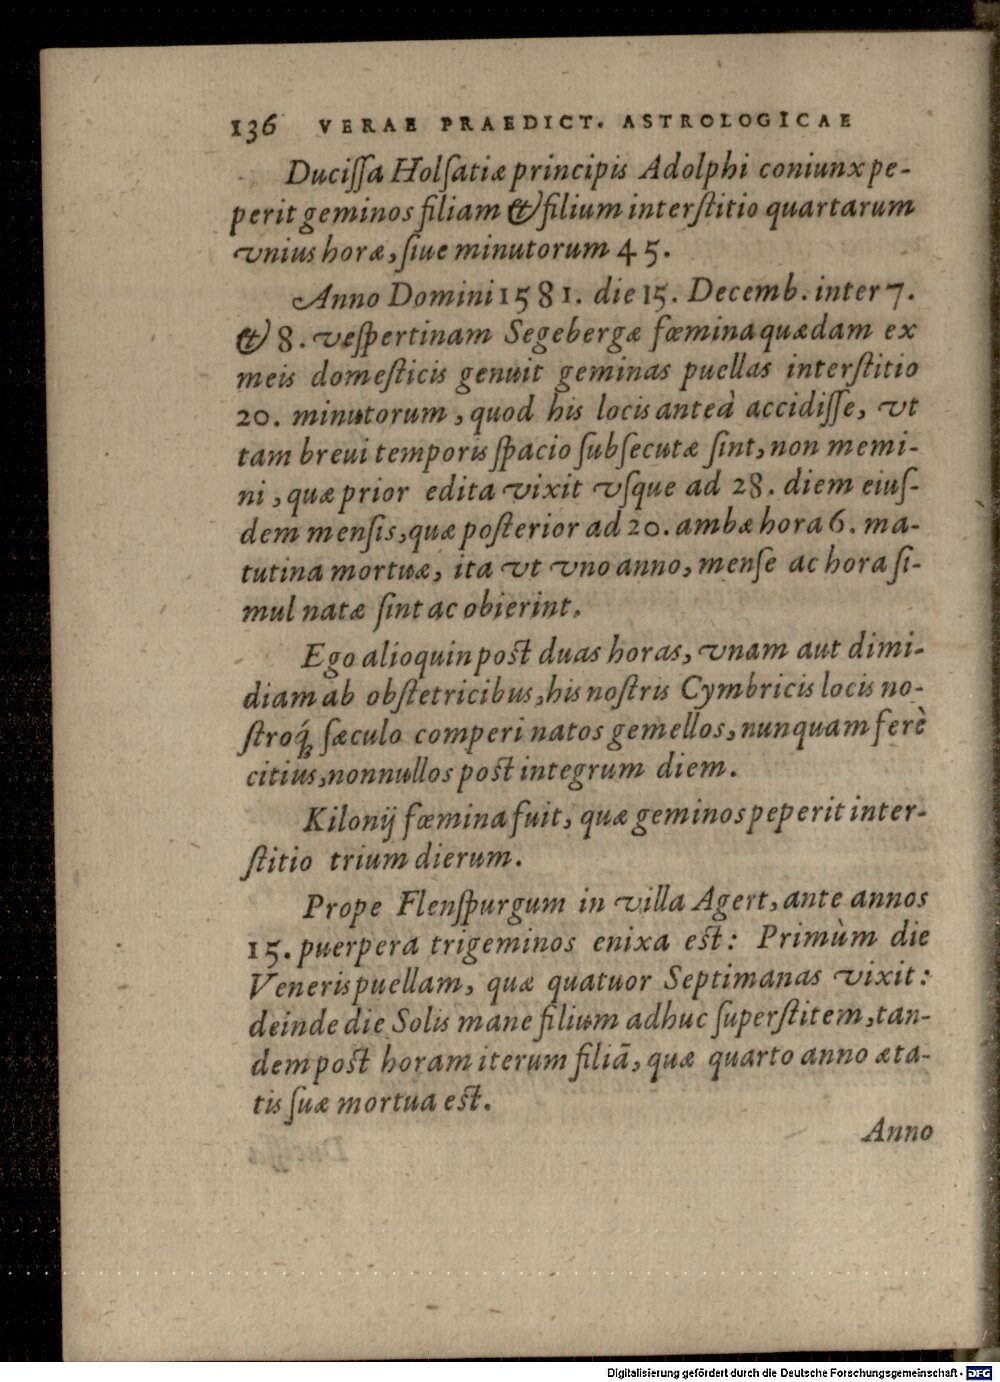 136 VERAE PRAEDICT. ASTROLOGICAE
Duciſſa Holſatiæ principis Adolphi coniunx pe-
perit geminos filiam & filium interſtitio quartarum
vnius horæ, ſiue minutorum 45.
Anno Domini 1581. die 15. Decemb. inter 7.
& 8. veſpertinam Segebergæ fœmina quædam ex
meis domeſticis genuit geminas puellas interſtitio
20. minutorum, quod his locis anteà accidiſſe, vt
tam breui temporis ſpacio ſubſecutæ ſint, non memi-
ni, quæ prior edita vixit vſque ad 28. diem eiuſ-
dem menſis, quæ poſterior ad 20. ambæ hora 6. ma-
tutina mortuæ, ita vt vno anno, menſe ac hora ſi-
mul natæ ſint ac obierint.
Ego alioquin poſt duas horas, vnam aut dimi-
diam ab obſtetricibus, his noſtris Cymbricis locis no-
ſtroq́ꝫ ſæculo comperi natos gemellos, nunquam ferè
citius, nonnullos poſt integrum diem.
Kilonij fœmina fuit, quæ geminos peperit inter-
ſtitio trium dierum.
Prope Flenſpurgum in villa Agert, ante annos
15. puerpera trigeminos enixa eſt: Primùm die
Veneris puellam, quæ quatuor Septimanas vixit:
deinde die Solis mane filium adhuc ſuperſtitem, tan-
dem poſt horam iterum filiā, quæ quarto anno æta-
tis ſuæ mortua eſt.
Anno
Digitalisierung gefördert durch die Deutsche Forschungsgemeinschaft - DFG